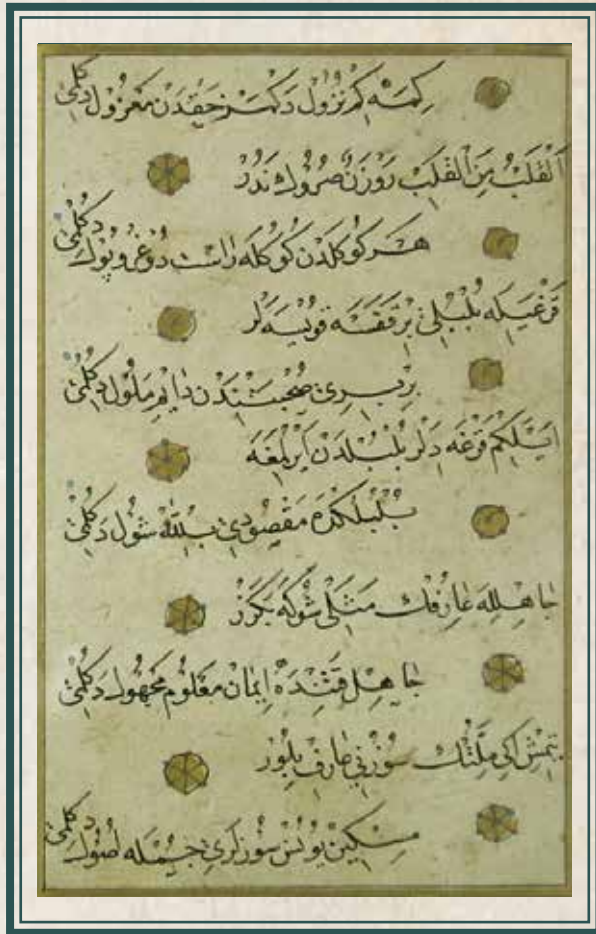 كمسه كم نزول دكمز حقدن معزول دكلمى
اَلْقَلْبُ مِنَ الْقَلْبِ رَوْزَنٌ صروك ندر
هر كوكلدن كوكله راست دوغرو يول دكلمى
قرغيله بلبلى بر قفسه قويسه لر
بربرى صحبتندن دايم ملول دكلمى
ايله كم قرغه دلر بلبلدن ايرلمغه
بلبلكده مقصودى بالله شول دكلمى
جاهلله عارفك مثلى شوكه بكزر
جاهل قتنده ايمان معلوم مجهول دكلمى
يتمش اكى ملتك سوزنى عارف بلور
مسكين يونس سوزلرى جمله اصول دكلمى